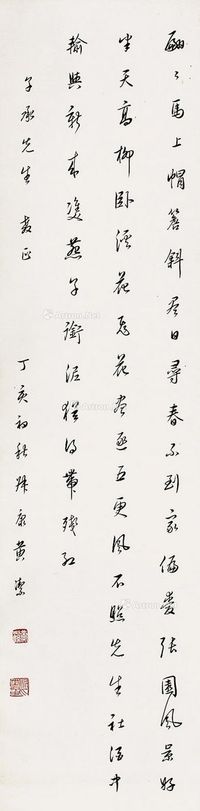 翩〻馬上帽簷斜盡日尋春不到家偏愛張園風景好
半天高柳臥溪花飛花盡逐五更風不照先生社酒中
輸與新來雙燕子銜泥猶得帶殘紅
子承先生 教正
丁亥初秋 康黃